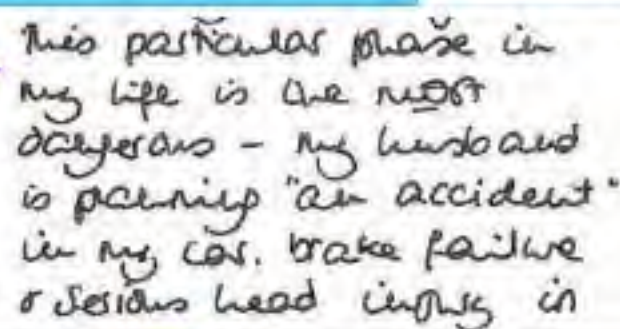 This particular phase in
my life is the most
dangerous - my husband
is planning "an accident"
in my car. brake failure
& serious head injury in